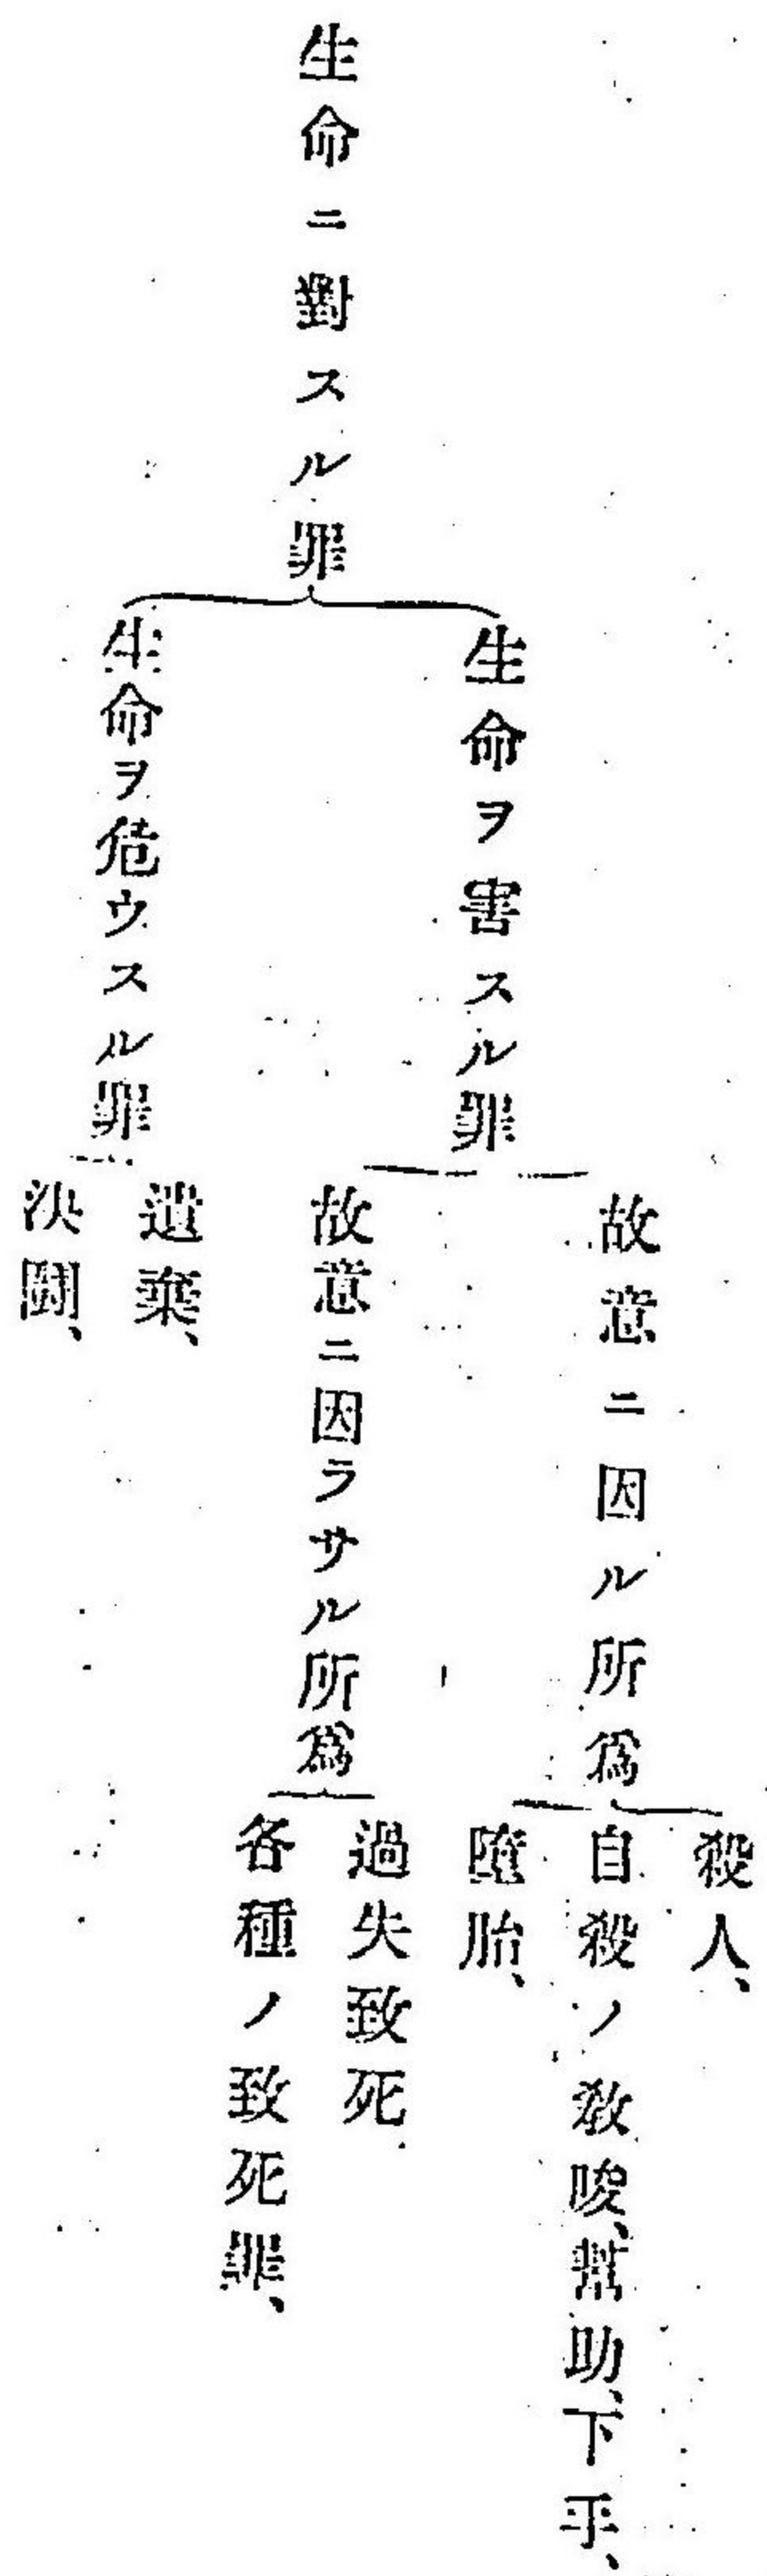 生命ニ對スル罪
生命ヲ害スル罪
故意ニ因ル所爲
殺人、
自殺ノ敎唆、幇助、下手、
墮胎、
故意ニ因ラサル所爲
過失致死
各種ノ致死罪、
生命ヲ危ウスル罪
遺棄、
決鬪、